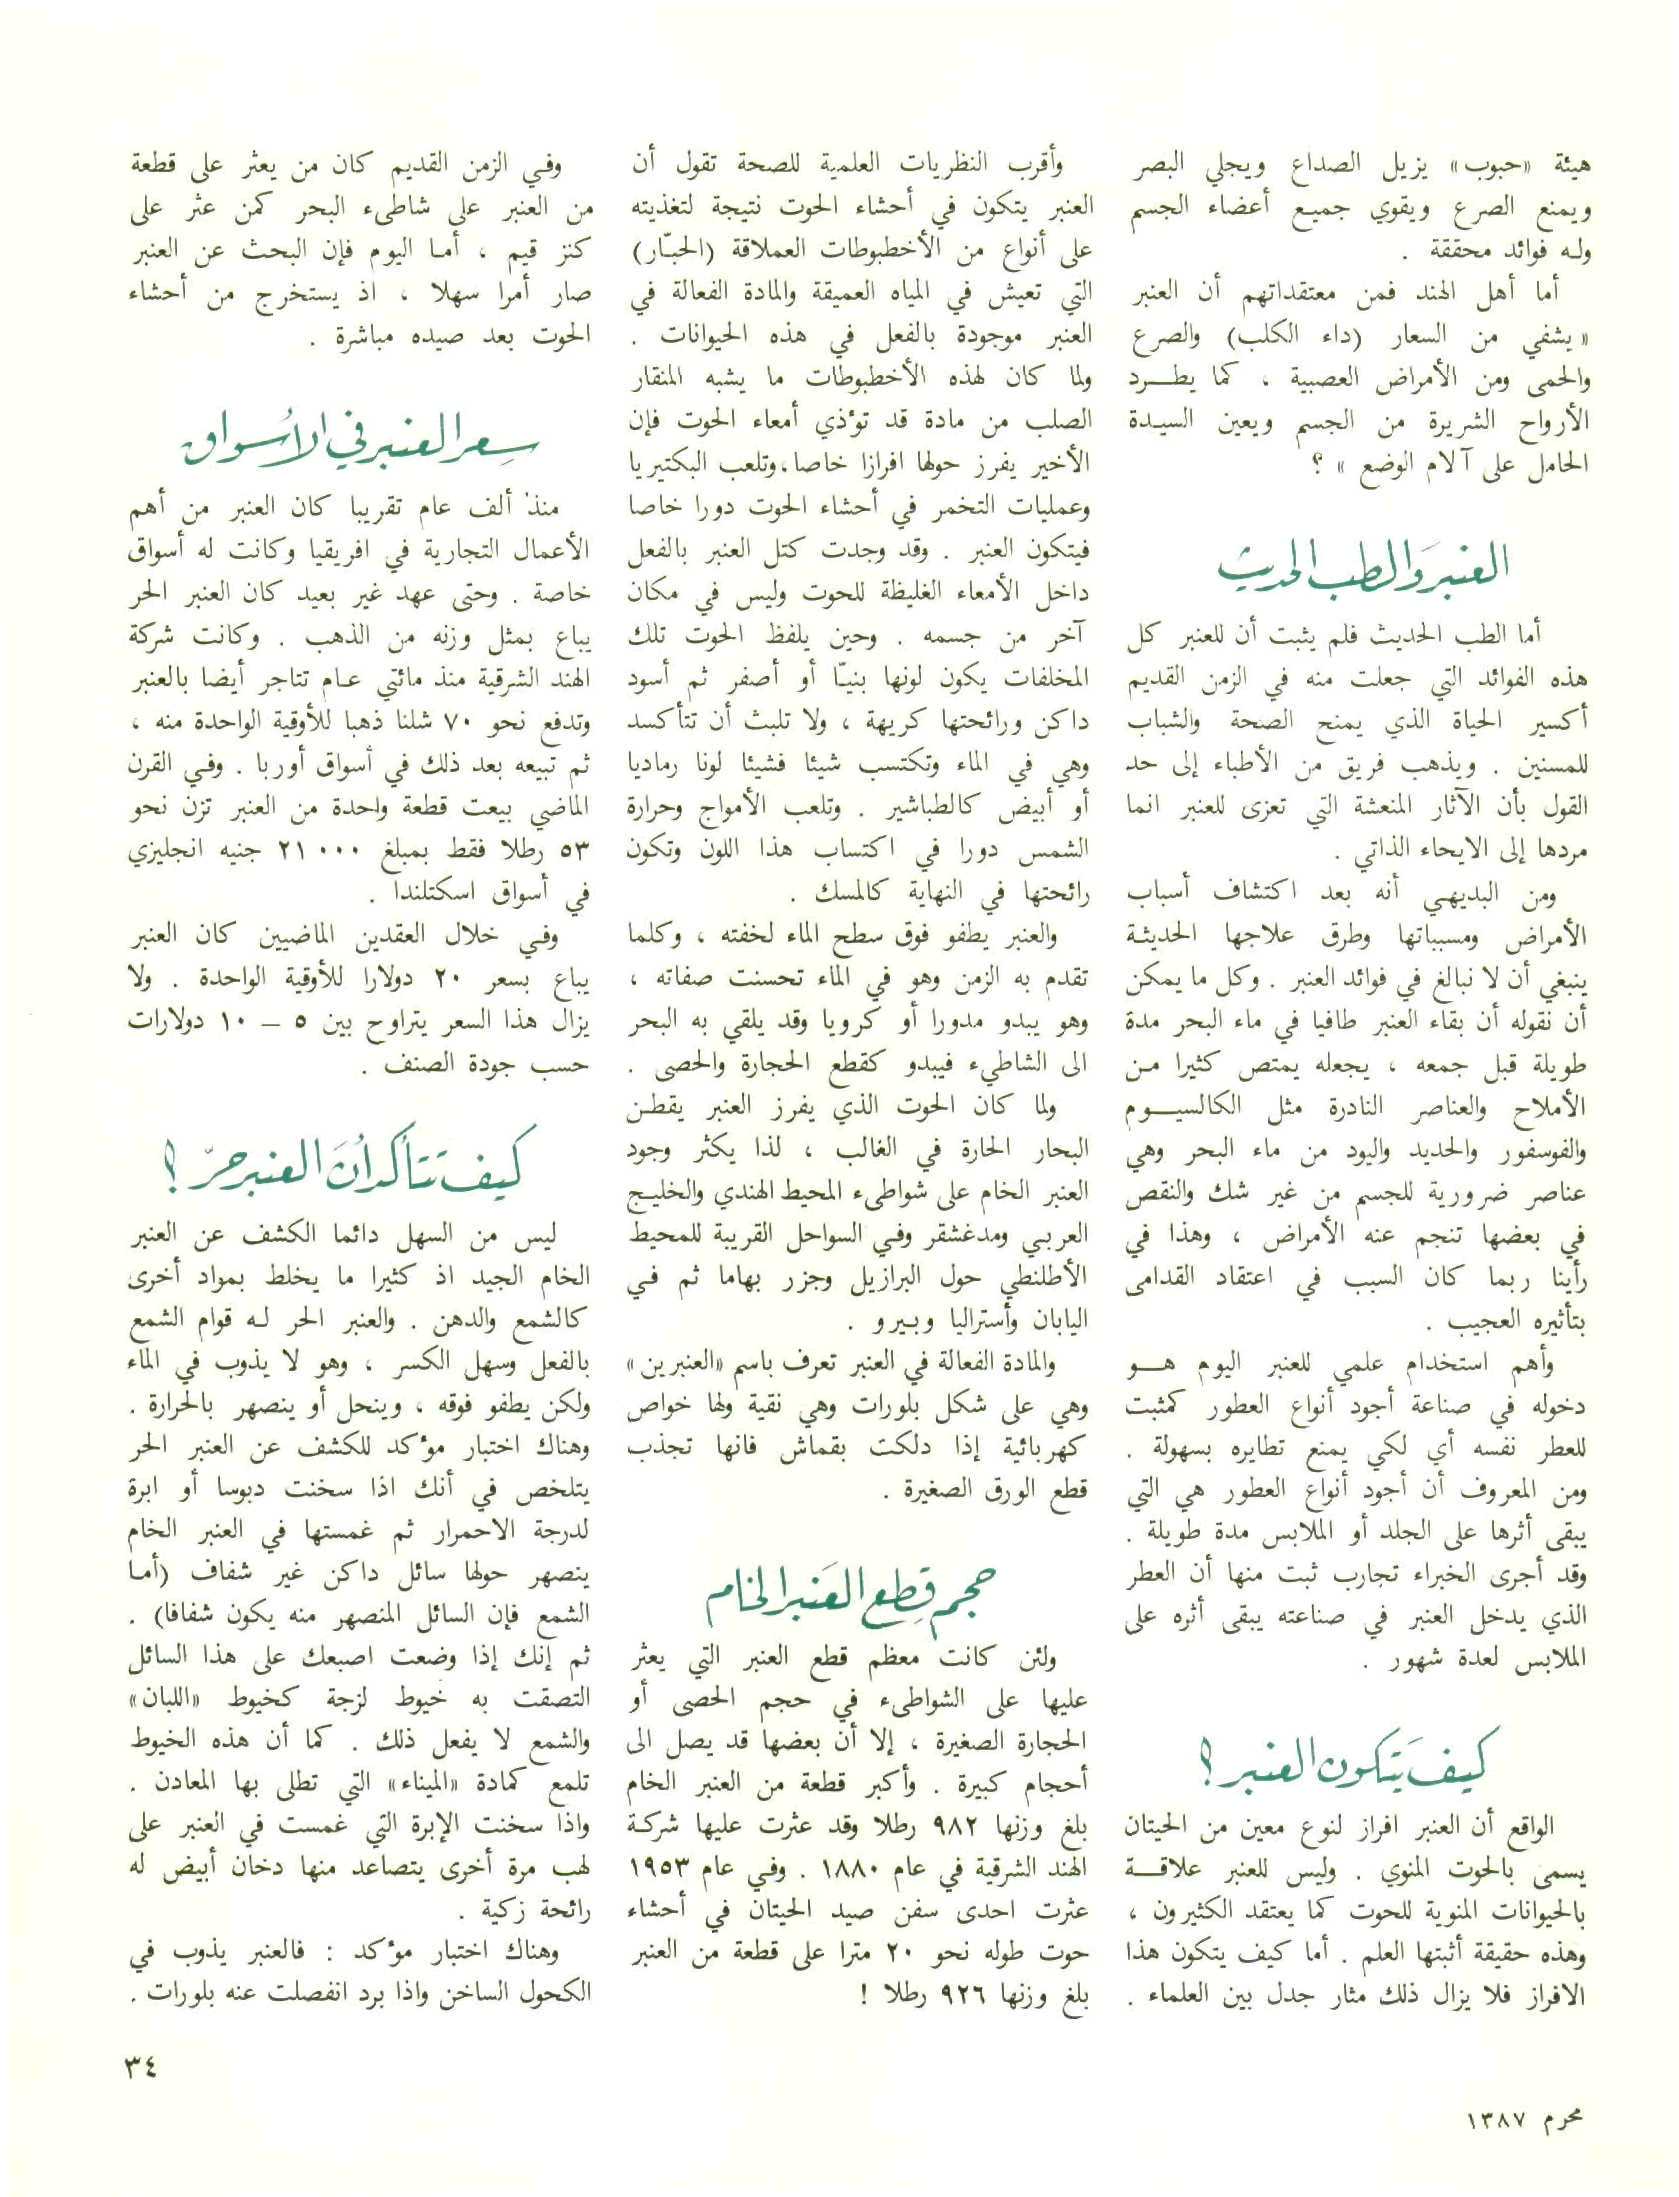 هيئة «حبوب» يزيل الصداع ويجلي البصر
ويمنع الصرع ويقوي جميع أعضاء الجسم
وله فوائد محققة .
أما أهل الهند فمن معتقداتهم أن العنبر
« يشفي من السعار (داء الكلب) والصرع
والحمى ومن الأمراض العصبية ، كما يطرد
الأرواح الشريرة من الجسم ويعين السيدة
الحامل على آلام الوضع » ؟
العنبر والطب الحديث
أما الطب الحديث فلم يثبت أن للعنبر كل
هذه الفوائد التي جعلت منه في الزمن القديم
أكسير الحياة الذي يمنح الصحة والشباب
للمسنين . ويذهب فريق من الأطباء إلى حد
القول بأن الآثار المنعشة التي تعزى للعنبر انما
مردها إلى الايحاء الذاتي .
ومن البديهي أنه بعد اكتشاف أسباب
الأمراض ومسبباتها وطرق علاجها الحديثة
ينبغي أن لا نبالغ في فوائد العنبر . وكل ما يمكن
أن نقوله أن بقاء العنبر طافيا في ماء البحر مدة
طويلة قبل جمعه ، يجعله يمتص كثيرا من
الأملاح والعناصر النادرة مثل الكالسيوم
والفوسفور والحديد واليود من ماء البحر وهي
عناصر ضرورية للجسم من غير شك والنقص
في بعضها تنجم عنه الأمراض ، وهذا في
رأينا ربما كان السبب في اعتقاد القدامى
بتأثيره العجيب .
وأهم استخدام علمي للعنبر اليوم هو
دخوله في صناعة أجود أنواع العطور كمثبت
للعطر نفسه أي لكي يمنع تطايره بسهولة .
ومن المعروف أن أجود أنواع العطور هي التي
يبقى أثرها على الجلد أو الملابس مدة طويلة .
وقد أجرى الخبراء تجارب ثبت منها أن العطر
الذي يدخل العنبر في صناعته يبقى أثره على
الملابس لعدة شهور .
كيف يتكون العنبر ؟
الواقع أن العنبر افراز لنوع معين من الحيتان
يسمى بالحوت المنوي . وليس للعنبر علاقة
بالحيوانات المنوية للحوت كما يعتقد الكثيرون ،
وهذه حقيقة أثبتها العلم . أما كيف يتكون هذا
الافراز فلا يزال ذلك مثار جدل بين العلماء .
وأقرب النظريات العلمية للصحة تقول أن
العنبر يتكون في أحشاء الحوت نتيجة لتغذيته
على أنواع من الأخطبوطات العملاقة (الحبّار)
التي تعيش في المياه العميقة والمادة الفعالة في
العنبر موجودة بالفعل في هذه الحيوانات .
ولما كان لهذه الأخطبوطات ما يشبه المنقار
الصلب من مادة قد تؤذي أمعاء الحوت فإن
الأخير يفرز حولها افرازا خاصا ، وتلعب البكتيريا
وعمليات التخمر في أحشاء الحوت دورا خاصا
فيتكون العنبر . وقد وجدت كتل العنبر بالفعل
داخل الأمعاء الغليظة للحوت وليس في مكان
آخر من جسمه . وحين يلفظ الحوت تلك
المخلفات يكون لونها بنيّا أو أصفر ثم أسود
داكن ورائحتها كريهة ، ولا تلبث أن تتأكسد
وهي في الماء وتكتسب شيئا فشيئا لونا رماديا
أو أبيض كالطباشير . وتلعب الأمواج وحرارة
الشمس دورا في اكتساب هذا اللون وتكون
رائحتها في النهاية كالمسك .
والعنبر يطفو فوق سطح الماء لخفته ، وكلما
تقدم به الزمن وهو في الماء تحسنت صفاته ،
وهو يبدو مدورا أو كرويا وقد يلقي به البحر
الى الشاطيء فيبدو كقطع الحجارة والحصى .
ولما كان الحوت الذي يفرز العنبر يقطن
البحار الحارة في الغالب ، لذا يكثر وجود
العنبر الخام على شواطىء المحيط الهندي والخليج
العربي ومدغشقر وفي السواحل القريبة للمحيط
الأطلنطي حول البرازيل وجزر بهاما ثم في
اليابان وأستراليا وبيرو .
والمادة الفعالة في العنبر تعرف باسم «العنبرين»
وهي على شكل بلورات وهي نقية ولها خواص
كهربائية إذا دلكت بقماش فانها تجذب
قطع الورق الصغيرة .
حجم قطع العنبر الخام
ولئن كانت معظم قطع العنبر التي يعثر
عليها على الشواطىء في حجم الحصى أو
الحجارة الصغيرة ، إلا أن بعضها قد يصل الى
أحجام كبيرة . وأكبر قطعة من العنبر الخام
بلغ وزنها ٩٨٢ رطلا وقد عثرت عليها شركة
الهند الشرقية في عام ١٨٨٠ . وفي عام ١٩٥٣
عثرت احدى سفن صيد الحيتان في أحشاء
حوت طوله نحو ٢٠ مترا على قطعة من العنبر
بلغ وزنها ٩٢٦ رطلا !
وفي الزمن القديم كان من يعثر على قطعة
من العنبر على شاطىء البحر كمن عثر على
كنز قيم ، أما اليوم فإن البحث عن العنبر
صار أمرا سهلا ، اذ يستخرج من أحشاء
الحوت بعد صيده مباشرة .
سعر العنبر في الأسواق
منذ ألف عام تقريبا كان العنبر من أهم
الأعمال التجارية في افريقيا وكانت له أسواق
خاصة . وحتى عهد غير بعيد كان العنبر الحر
يباع بمثل وزنه من الذهب . وكانت شركة
الهند الشرقية منذ مائتي عام تتاجر أيضا بالعنبر
وتدفع نحو ٧٠ شلنا ذهبا للأوقية الواحدة منه ،
ثم تبيعه بعد ذلك في أسواق أوربا . وفي القرن
الماضي بيعت قطعة واحدة من العنبر تزن نحو
٥٣ رطلا فقط بمبلغ ٢١٠٠٠ جنيه انجليزي
في أسواق اسكتلندا .
وفي خلال العقدين الماضيين كان العنبر
يباع بسعر ٢٠ دولارا للأوقية الواحدة . ولا
يزال هذا السعر يتراوح بين ٥ – ١٠ دولارات
حسب جودة الصنف .
كيف تتأكد أن العنبر حرّ ؟
ليس من السهل دائما الكشف عن العنبر
الخام الجيد اذ كثيرا ما يخلط بمواد أخرى
كالشمع والدهن . والعنبر الحر له قوام الشمع
بالفعل وسهل الكسر ، وهو لا يذوب في الماء
ولكن يطفو فوقه ، وينحل أو ينصهر بالحرارة .
وهناك اختبار مؤكد للكشف عن العنبر الحر
يتلخص في أنك اذا سخنت دبوسا أو ابرة
لدرجة الاحمرار ثم غمستها في العنبر الخام
ينصهر حولها سائل داكن غير شفاف (أما
الشمع فإن السائل المنصهر منه يكون شفافا) .
ثم إنك إذا وضعت اصبعك على هذا السائل
التصقت به خيوط لزجة كخيوط «اللبان»
والشمع لا يفعل ذلك . كما أن هذه الخيوط
تلمع كمادة «الميناء» التي تطلى بها المعادن .
واذا سخنت الإبرة التي غمست في العنبر على
لهب مرة أخرى يتصاعد منها دخان أبيض له
رائحة زكية .
وهناك اختبار مؤكد : فالعنبر يذوب في
الكحول الساخن واذا برد انفصلت عنه بلورات .
٣٤
محرم ١٣٨٧